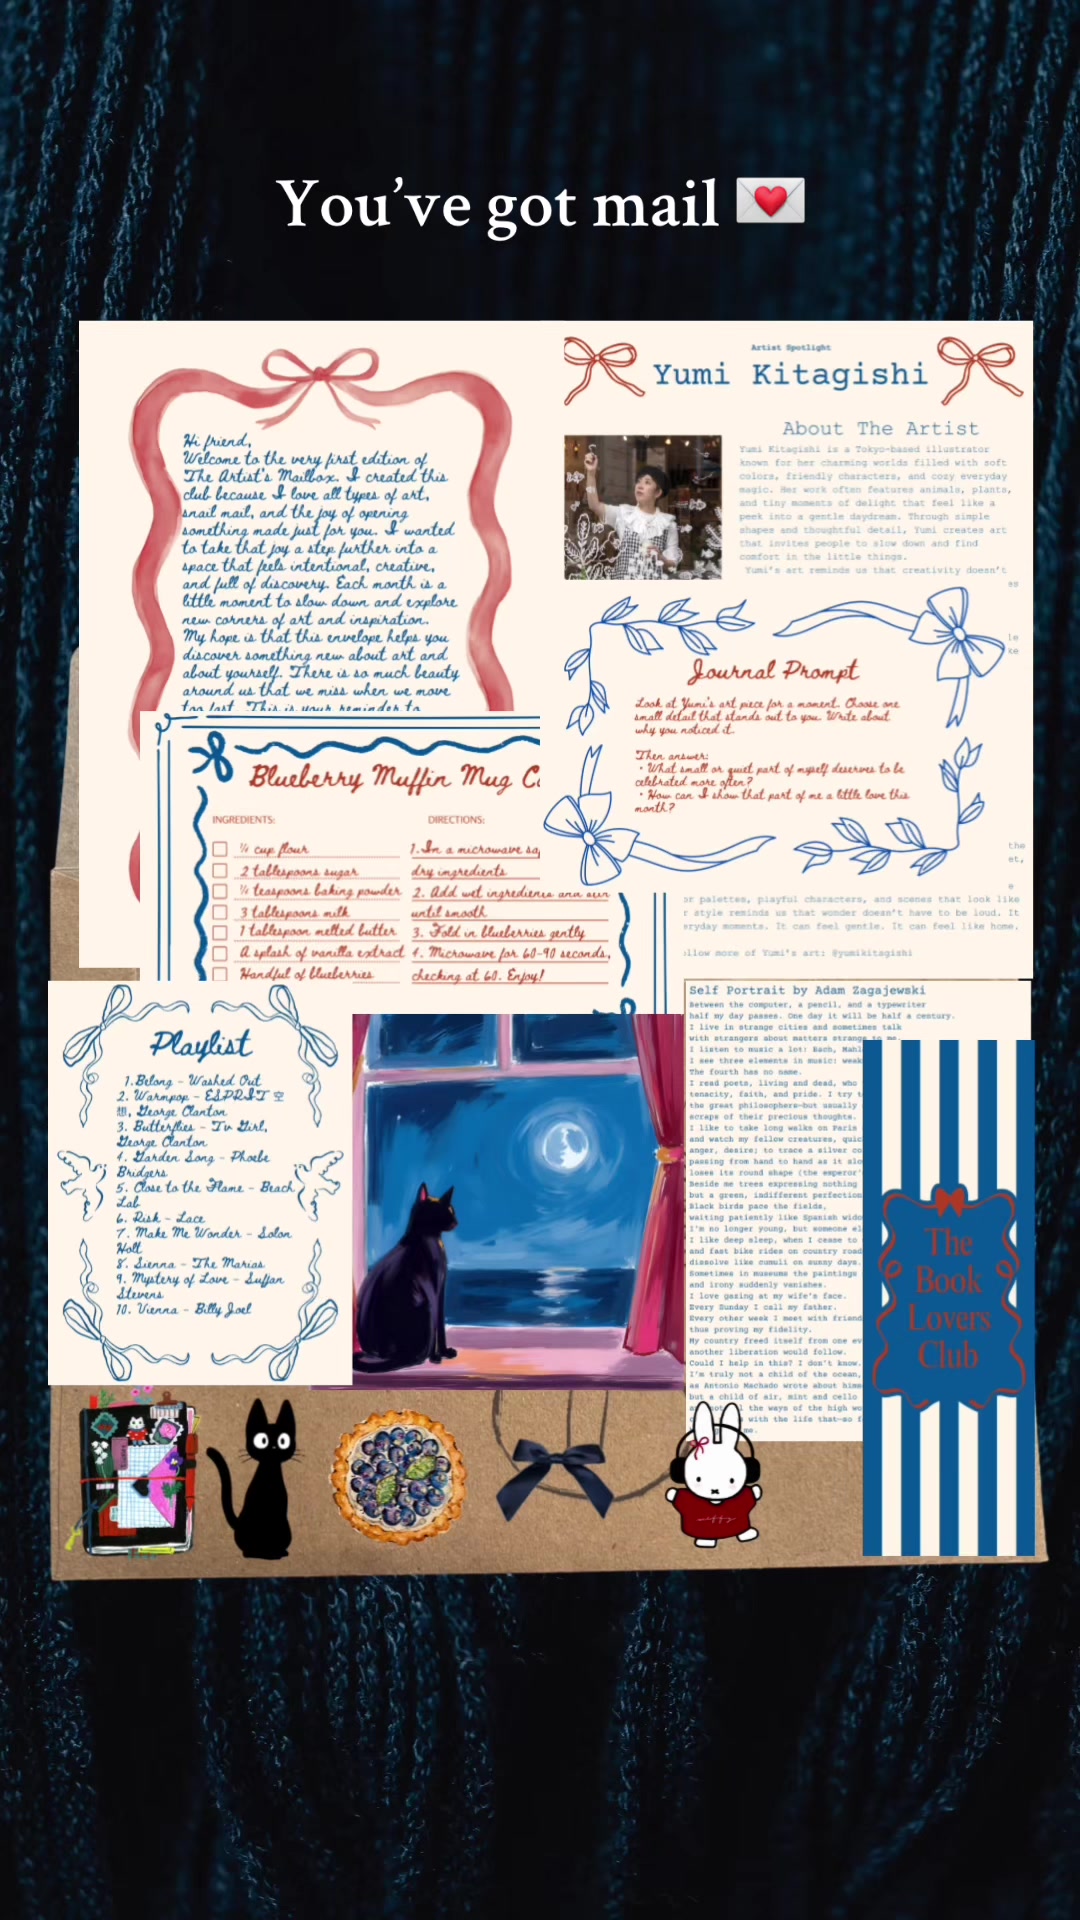 You've got mail
Hi friend,
Welcome to the very first edition of
The Artist's Mailbox. I created this
club because I love all types of art,
snail mail, and the joy of opening
something made just for you. I wanted
to take that joy a step further into a
space that feels intentional, creative,
and full of discovery. Each month is a
little moment to slow down and explore
new corners of art and inspiration.
My hope is that this envelope helps you
discover something new about art and
about yourself. There is so much beauty
around us that we miss when we move
too fast. This is your reminder to
Artist Spotlight
Yumi Kitagishi
About The Artist
Yumi Kitagishi is a Tokyo-based illustrator
known for her charming worlds filled with soft
colors, friendly characters, and cozy everyday
magic. Her work often features animals, plants,
and tiny moments of delight that feel like a
peek into a gentle daydream. Through simple
shapes and thoughtful detail, Yumi creates art
that invites people to slow down and find
comfort in the little things.
Yumi's art reminds us that creativity doesn't
Journal Prompt
Look at Yumi's art piece for a moment. Choose one
small detail that stands out to you. Write about
why you noticed it.
Then answer:
• What small or quiet part of myself deserves to be
celebrated more often?
• How can I show that part of me a little love this
month?
the
et,
e
or palettes, playful characters, and scenes that look like
r style reminds us that wonder doesn't have to be loud. It
eryday moments. It can feel gentle. It can feel like home.
llow more of Yumi's art: @yumikitagishi
Blueberry Muffin Mug C
INGREDIENTS:
¼ cup flour
2 tablespoons sugar
¼ teaspoons baking powder
3 tablespoons milk
1 tablespoon melted butter
A splash of vanilla extract
Handful of blueberries
DIRECTIONS:
1. In a microwave sa
dry ingredients
2. Add wet ingredients and stir
until smooth
3. Fold in blueberries gently
4. Microwave for 60-90 seconds,
checking at 60. Enjoy!
Playlist
1. Belong - Washed Out
2. Warmpop - ESPRIT 空
想, George Clanton
3. Butterflies - Tv Girl,
George Clanton
4. Garden Song - Phoebe
Bridgers
5. Close to the Flame - Beach
Lab
6. Risk - Lace
7. Make Me Wonder - Solon
Holt
8. Sienna - The Marias
9. Mystery of Love - Sufjan
Stevens
10. Vienna - Billy Joel
Self Portrait by Adam Zagajewski
Between the computer, a pencil, and a typewriter
half my day passes. One day it will be half a century.
I live in strange cities and sometimes talk
with strangers about matters strange to me.
I listen to music a lot: Bach, Mahl
I see three elements in music: weak
The fourth has no name.
I read poets, living and dead, who
tenacity, faith, and pride. I try t
the great philosophers—but usually
scraps of their precious thoughts.
I like to take long walks on Paris
and watch my fellow creatures, quic
anger, desire; to trace a silver co
passing from hand to hand as it slo
loses its round shape (the emperor'
Beside me trees expressing nothing
but a green, indifferent perfection
Black birds pace the fields,
waiting patiently like Spanish wido
I'm no longer young, but someone el
I like deep sleep, when I cease to
and fast bike rides on country road
dissolve like cumuli on sunny days.
Sometimes in museums the paintings
and irony suddenly vanishes.
I love gazing at my wife's face.
Every Sunday I call my father.
Every other week I meet with friend
thus proving my fidelity.
My country freed itself from one ev
another liberation would follow.
Could I help in this? I don't know.
I'm truly not a child of the ocean,
as Antonio Machado wrote about hims
but a child of air, mint and cello
all the ways of the high wo
with the life that—so f
me.
The
Book
Lovers
Club